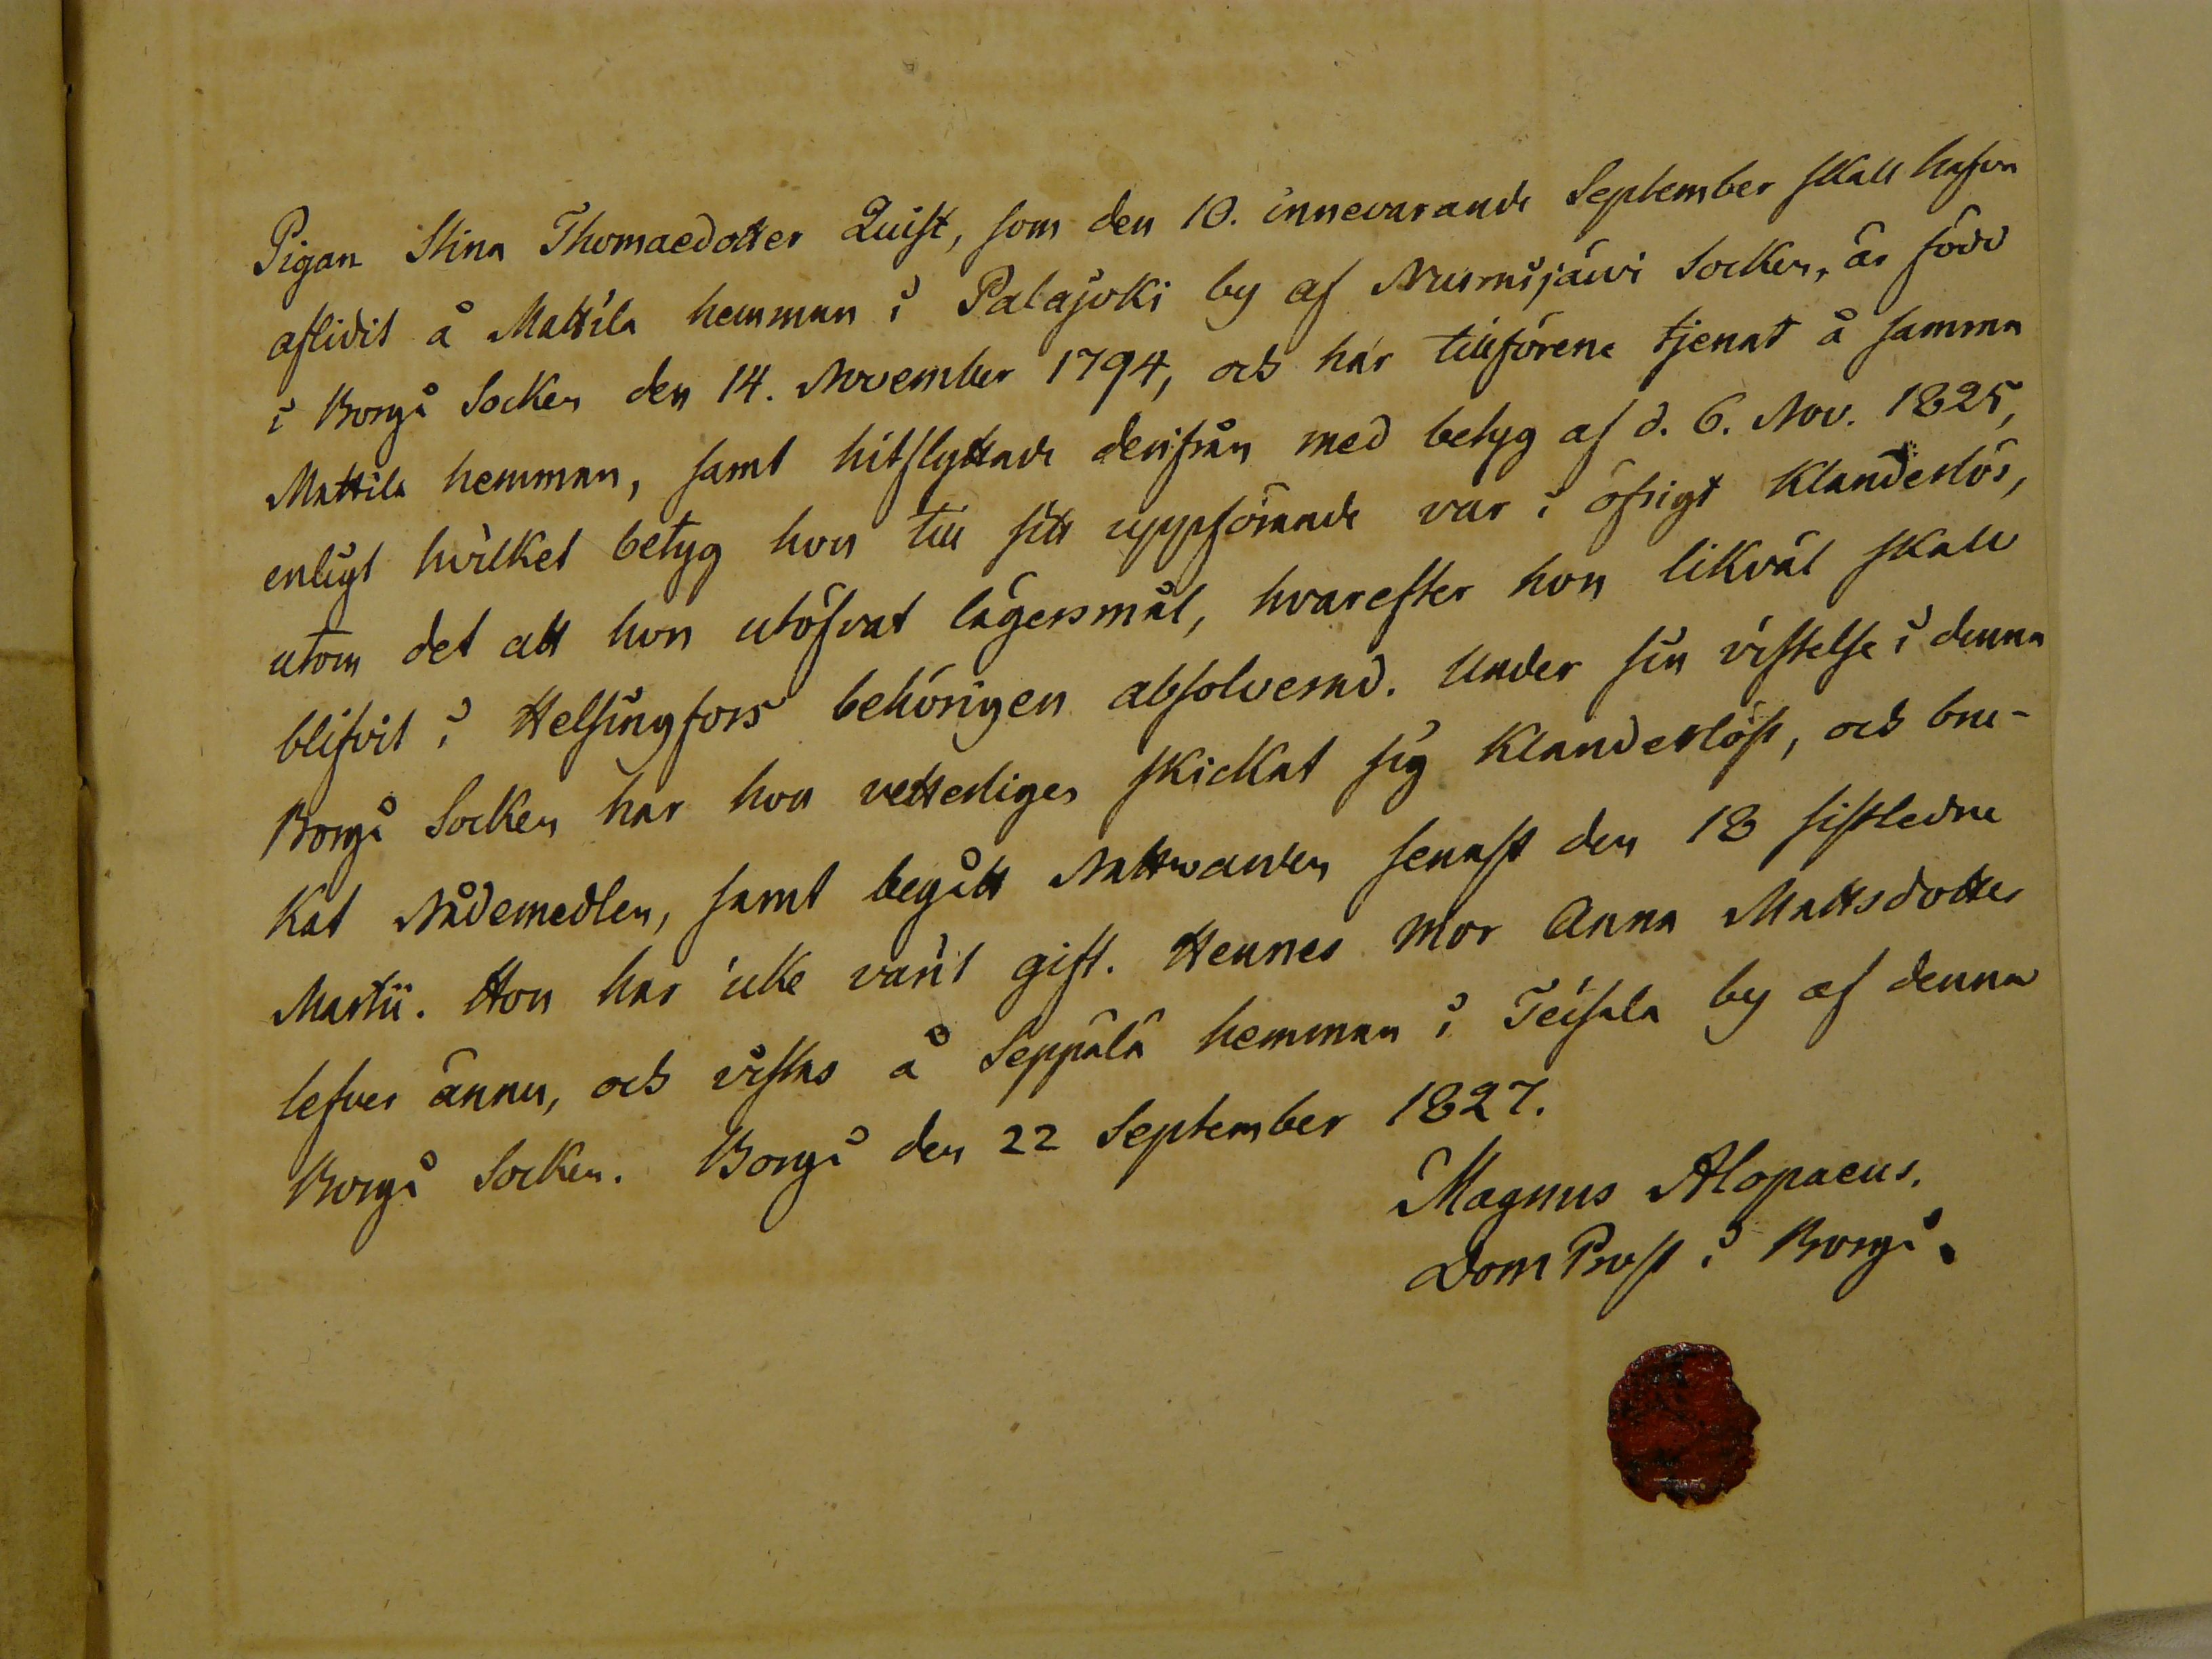 Pigan Stina Thomaedotter Quist, som den 10. innevarande September skall hafva
aflidit å Mattila hemman i Palajoki by af Nurmijärvi Socken, är född
i Borgå Socken den 14. November 1794, och har tillförene tjenat å samma
Mattila hemman, samt hitflyttade derifrån med betyg af d. 6. Nov. 1825,
enligt hvilket betyg hon till sitt uppförande var i öfrigt klanderlös,
utom det att hon utöfvat lägersmål, hvarefter hon likväl skall
blifvit i Helsingfors behörigen absolverad. Under sin vistelse i denna
Borgå Socken har hon vetterligen skickat sig klanderlöst, och bru-
kat Nådemedlen, samt begått Nattvarden senast den 18 sistledne
Martii. Hon har icke varit gift. Hennes mor Anna Mattsdotter
lefver ännu, och vistas å Seppälä hemman i Teisala by af denna
Borgå Socken. Borgå den 22 September 1827.
Magnus Alopaeus.
DomProst i Borgå.